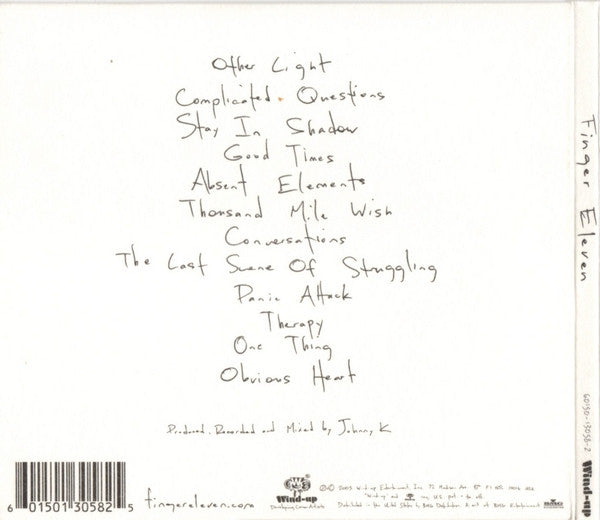 Other Light
Complicated Questions
Stay In Shadow
Good Times
Absent Elements
Thousand Mile Wish
Conversations
The Last Scene Of Struggling
Panic Attack
Therapy
One Thing
Obvious Heart
Produced, Recorded and Mixed by Johnny K
6 01501 30582 5
fingereleven.com
Wind-up
2003 Wind-up Entertainment, Inc. 72 Madison Ave
BMG
Finger Eleven
60150-13058-2
Wind-up